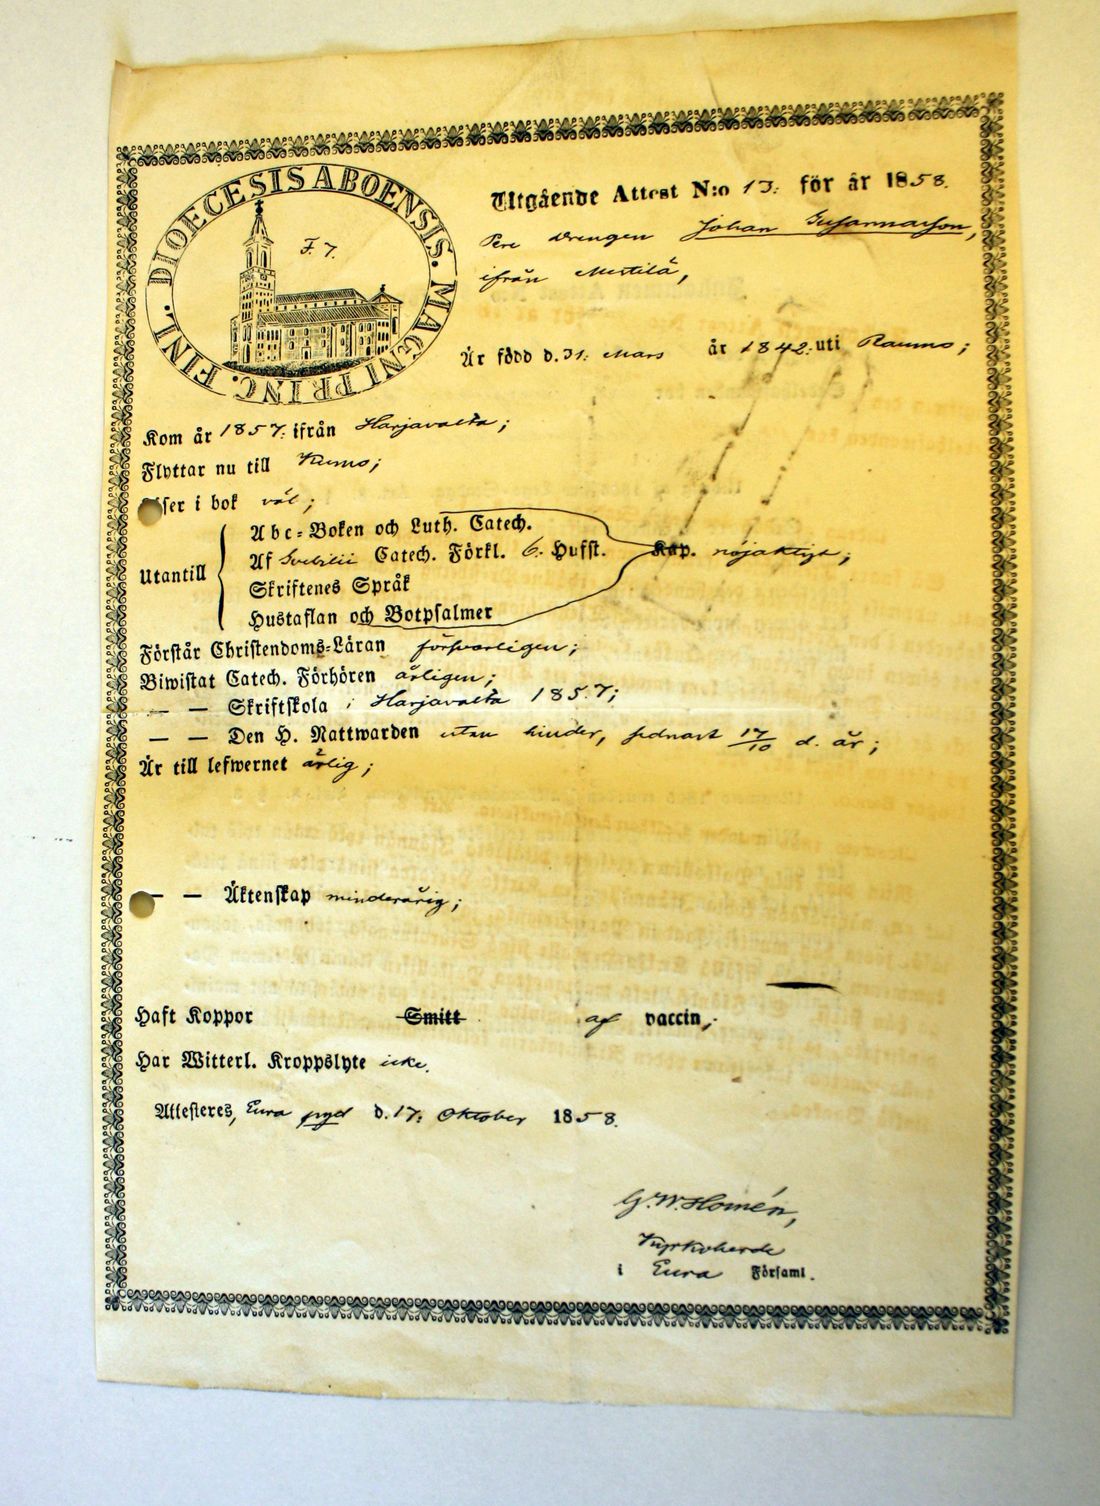 DIOECESIS ABOENSIS. MAGNI PRINC. FINL.
F. 7.
Utgående Attest N:o 13: för år 1858.
drengen Johan Gusannasson,
ifrån Mestilä,
Är född d. 31: Mars år 1842: uti Raumo;
Kom år 1857: ifrån Harjavalta;
Flyttar nu till Kumo;
Läser i bok väl;
Utantill
Abc-Boken och Luth. Catech.
Af Svebilii Catech. Förkl. 6. Hufst. Kap. nöjaktigt;
Skriftenes Språk
Hustaflan och Botpsalmer
Förstår Christendoms-Läran försvarligen;
Biwistat Catech. Förhören årligen;
— — Skriftskola i Harjavalta 1857;
— — Den H. Nattwarden utan hinder, sednast 17/10 d. år;
Är till lefwernet ärlig;
— — Äktenskap minderårig;
Haft Koppor Smitt af vaccin;
Har Witterl. Kroppslyte icke.
Attesteres, Eura pgd d. 17: Oktober 1858.
G. W. Homén,
Kyrkoherde
i Eura Församl.